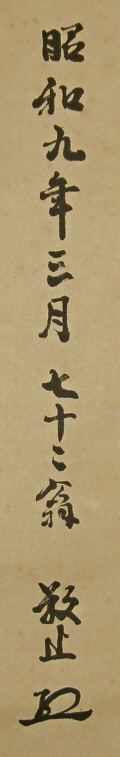 昭和九年三月七十二翁 敬止